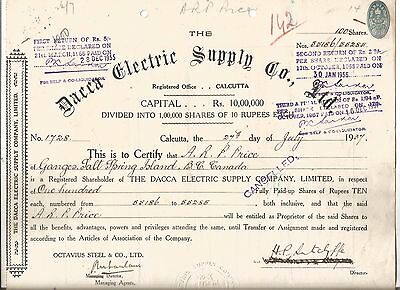 A R P Price
142
THE
Dacca Electric Supply Co., Ltd.
100 Shares
Nos. 55186/55285
FIRST RETURN OF Rs. 5/-
PER SHARE DECLARED ON
21st MARCH, 1955 PAID ON
28 DEC 1955
FOR SELF & CO-LIQUIDATOR
SECOND RETURN OF Rs 2/8
PER SHARE, DECLARED ON
PAID ON
30 JAN 1956
FOR SELF & CO-LIQUIDATOR
Registered Office .. CALCUTTA
CAPITAL .. Rs. 10,00,000
DIVIDED INTO 1,00,000 SHARES OF 10 RUPEES EACH
THIRD & FINAL
FOR SELF & CO-LIQUIDATOR
No. 1728
Calcutta, the 27th day of July 1937.
This is to Certify that A. R. P. Price
CANCELLED
of Ganges, Salt Spring Island B.C. Canada
is a Registered Shareholder of THE DACCA ELECTRIC SUPPLY COMPANY, LIMITED, in respect of
One hundred Fully Paid-up Shares of Rupees TEN
each, numbered from 55186 to 55285 both inclusive, and that the said
A. R. P. Price will be entitled as Proprietor of the said Shares to
all the benefits, advantages, powers and privileges attending the same, until Transfer or Assignment made and registered
according to the Articles of Association of the Company.
OCTAVIUS STEEL & CO., LTD.
Managing Director,
Managing Agents.
Director.
THE DACCA ELECTRIC SUPPLY COMPANY, LIMITED.